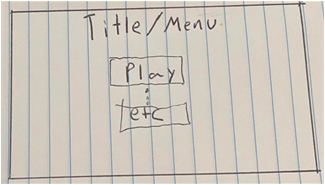 Title/Menu
Play
etc